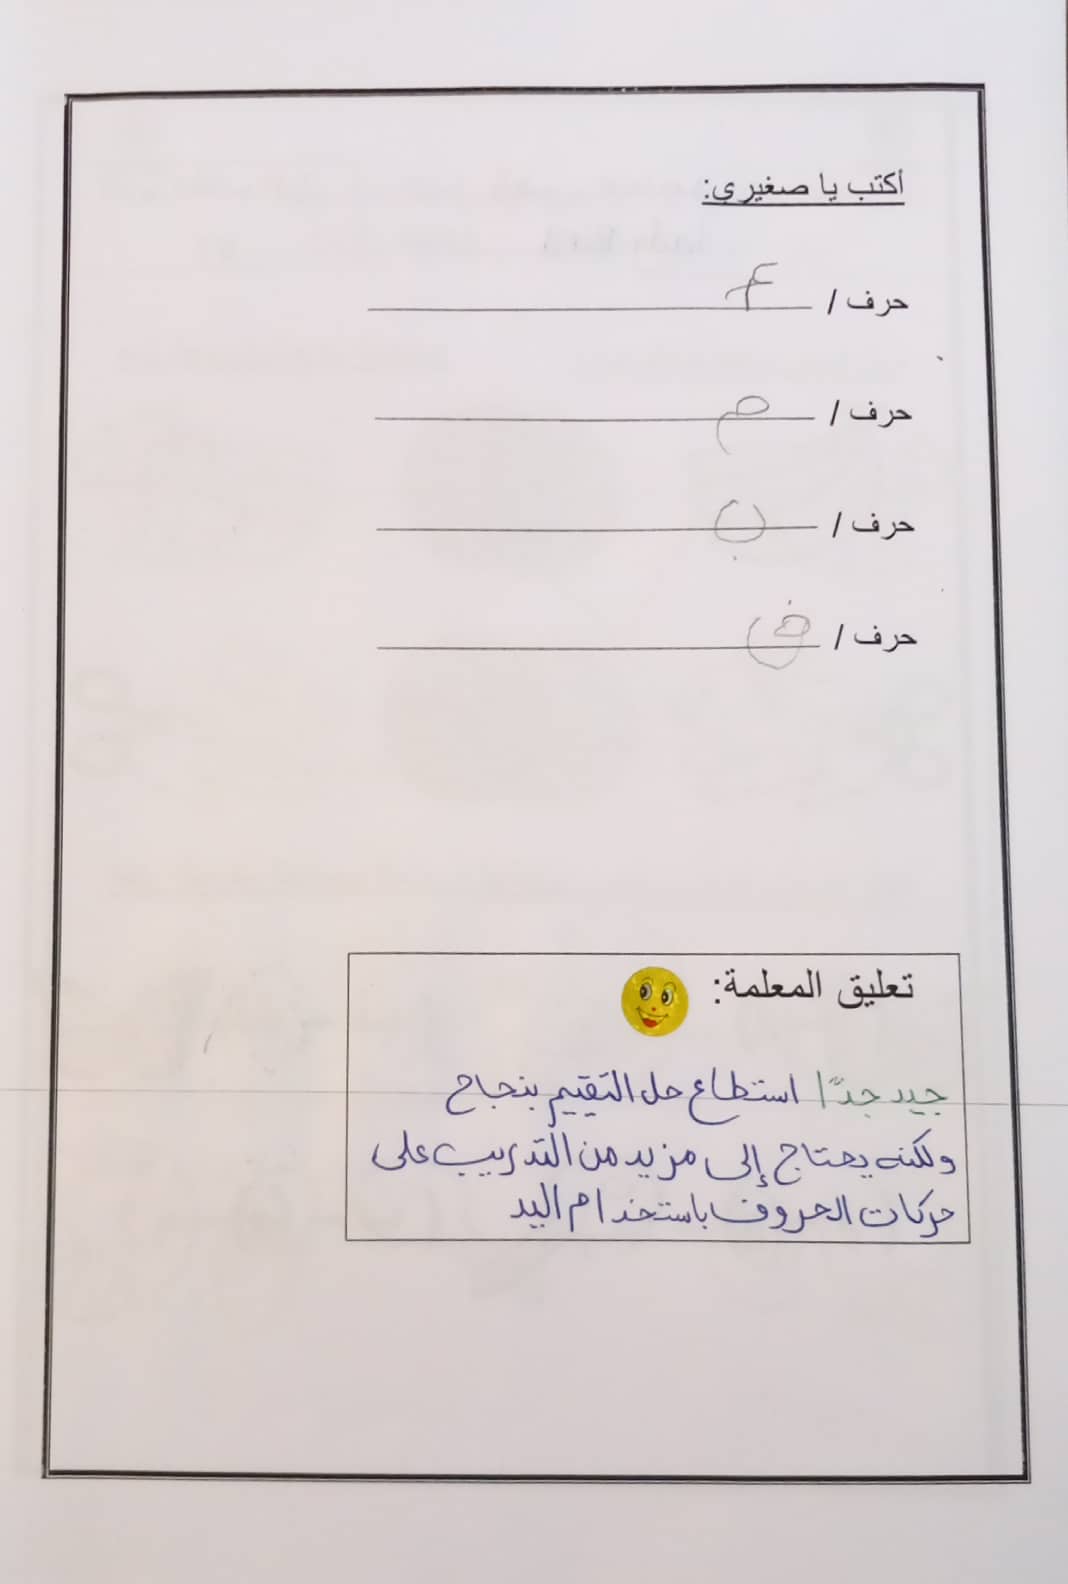 أكتب يا صغيري:
حرف / م
حرف / ب
حرف / ض
تعليق المعلمة:
جيد جدًا استطاع حل التقييم بنجاح
ولكنه يحتاج إلى مزيد من التدريب على
حركات الحروف باستخدام اليد